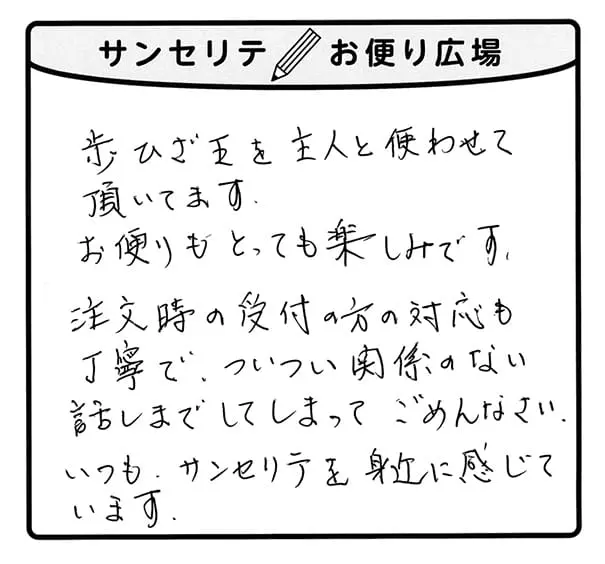 サンセリテ お便り広場
歩ひざ王を主人と使わせて
頂いてます.
お便りもとっても楽しみです.
注文時の受付の方の対応も
丁寧で、ついつい関係のない
話しまでしてしまってごめんなさい.
いつも、サンセリテを身近に感じて
います.